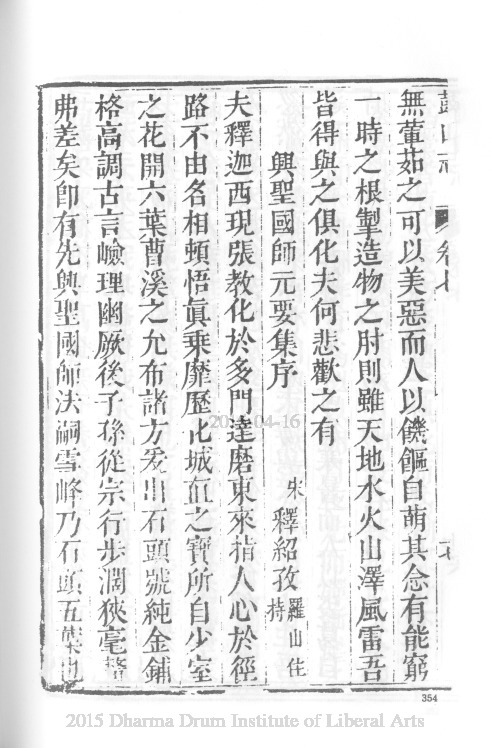 鼓山志 卷七
無葷茹之可以美惡而人以饑饇自萌其念有能窮
一時之根掣造物之肘則雖天地水火山澤風雷吾
皆得與之俱化夫何悲歡之有
興聖國師元要集序
宋 釋紹孜 羅山住持
夫釋迦西現張教化於多門達磨東來指人心於徑
路不由名相頓悟眞乗靡歷化城直之寶所自少室
之花開六葉曹溪之允布諸方爰出石頭號純金鋪
格高調古言嶮理幽厥後子孫從宗行步濶狹毫釐
弗差矣卽有先興聖國師法嗣雪峰乃石頭五葉也
354
2015 Dharma Drum Institute of Liberal Arts